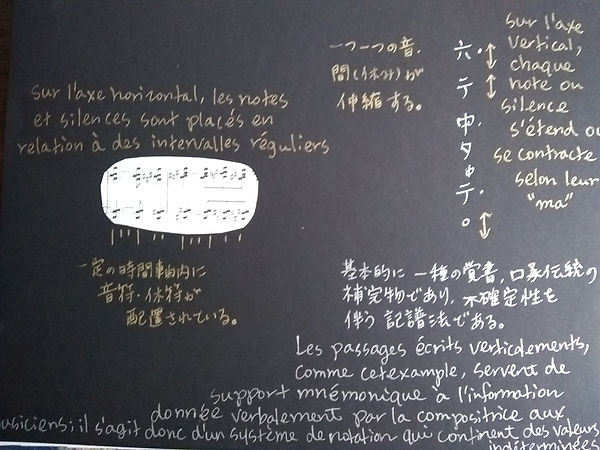 sur l'axe horizontal, les notes
et silences sont placés en
relation à des intervalles réguliers
一定の時間軸内に
音符・休符が
配置されている。
一つ一つの音・
間(休み)が
伸縮する。
六・
テ
中・
夕
中
テ・
○
sur l'axe
vertical,
chaque
note ou
silence
s'étend ou
se contracte
selon leur
"ma"
基本的に 一種の覚書、口承伝統の
補完物であり、不確定性を
伴う 記譜法である。
Les passages écrits verticalements,
comme cet example, servent de
support mnémonique à l'information
donnée verbalement par la compositrice aux
musiciens; il s'agit donc d'un système de notation qui contient des valeurs
indéterminées